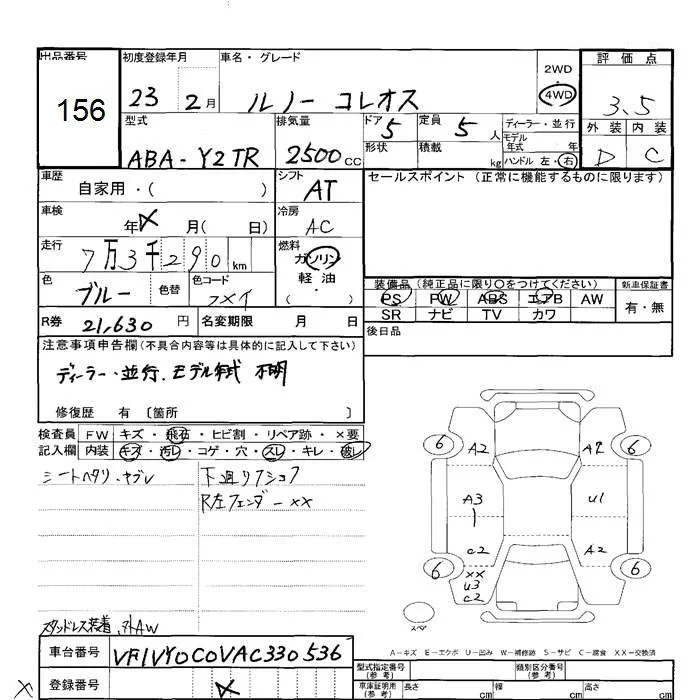 出品番号
156
初度登録年月
23 2月
車名・グレード
ルノー コレオス
2WD
4WD
評価点
3.5
外装 内装
D C
型式
ABA-Y2TR
排気量
2500cc
ドア
5
定員
5人
形状
積載
kg
ディーラー・並行
モデル年式 年
ハンドル 左・右
車歴
自家用・( )
シフト
AT
セールスポイント (正常に機能するものに限ります)
車検
年 月( 日)
冷房
AC
走行
7万3千290km
燃料
ガソリン
軽油
( )
色
ブルー
色替
色コード
R券 21,630円
名変期限 月 日
装備品 (純正品に限り○をつけてください)
PS PW ABS エアB AW
SR ナビ TV カワ
新車保証書
有・無
後日品
注意事項申告欄(不具合内容等は具体的に記入して下さい)
ディーラー・並行、モデル年式 不明
修復歴 有 〔箇所 〕
検査員記入欄
FW キズ・飛石・ヒビ割・リペア跡・×要
内装 キズ・汚レ・コゲ・穴・スレ・キレ・破レ
シートヘタリ・ヤブレ
下廻リ
R左フェンダー××
スタッドレス装着、外AW
6 A2 A2 6
A3 U1
C2 A2
6 ×× 6
U3
C2
スペア
A-キズ E-エクボ U-凹み W-補修跡 S-サビ C-腐食 XX-交換済
車台番号 VF1VY0C0VAC330536
登録番号
型式指定番号(参考)
類別区分番号(参考)
車庫証明用(参考)
長さ cm 幅 cm 高さ cm